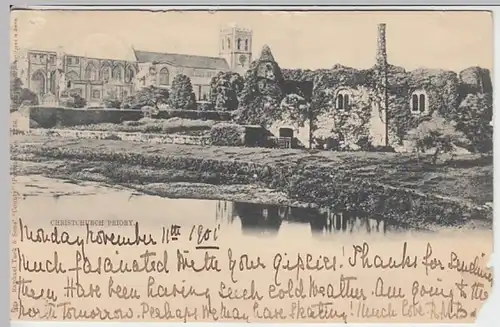 CHRISTCHURCH PRIORY.
Monday November 11th 1901
Much fascinated with your gipsies! Thanks for sending
them. Have been having such cold weather. Am going to the
in tomorrow. Perhaps we may have skating! Much love